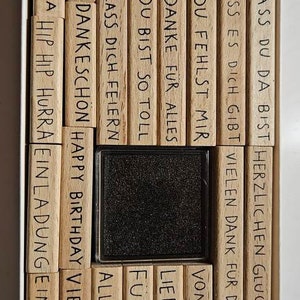 HIP HIP HURRA
DANKESCHÖN
ASS DICH FEIERN
DU BIST SO TOLL
DANKE FÜR ALLES
DU FEHLST MIR
ASS ES DICH GIBT
ASS DU DA BIST
EINLADUNG
HAPPY BIRTHDAY
VIELEN DANK FÜR
HERZLICHEN GLÜ
EIN
VIE
ALL
FÜ
HE
VON